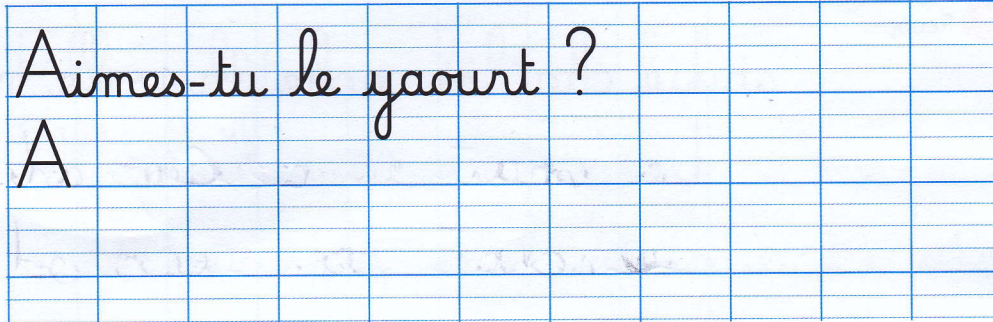 Aimes-tu le yaourt ?
A